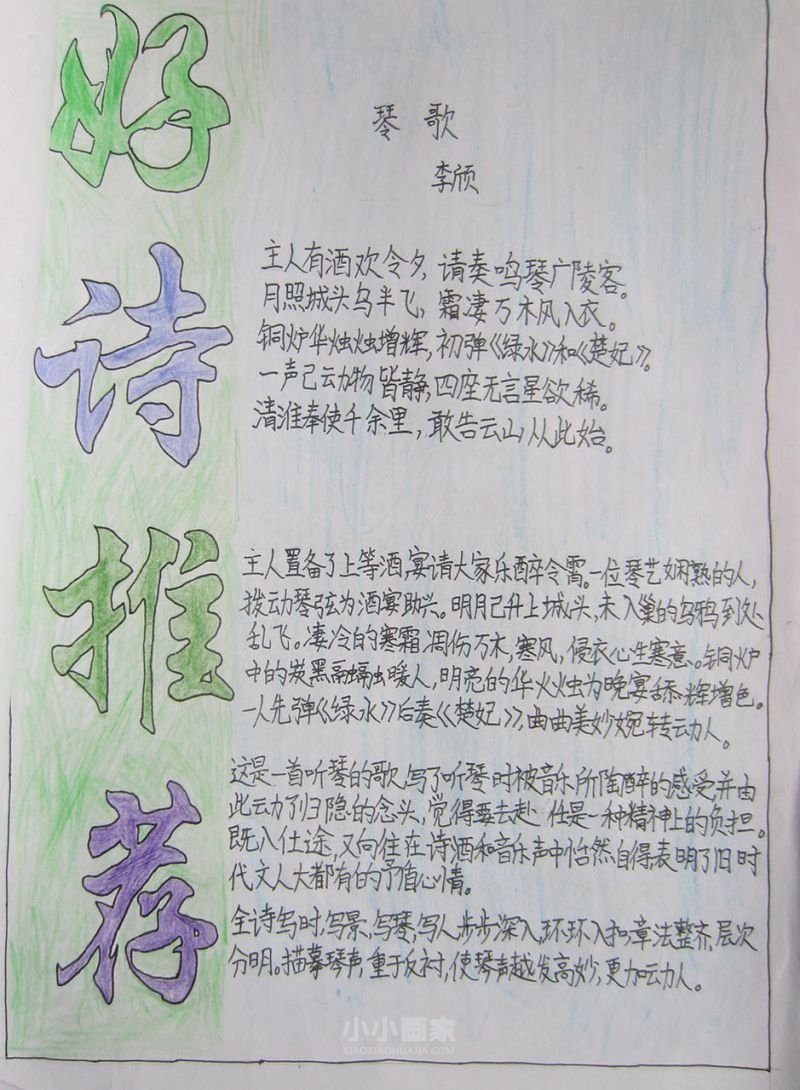 好诗推荐
琴 歌
李颀
主人有酒欢今夕,请奏鸣琴广陵客。
月照城头乌半飞,霜凄万木风入衣。
铜炉华烛烛增辉,初弹《绿水》和《楚妃》。
一声已动物皆静,四座无言星欲稀。
清淮奉使千余里,敢告云山从此始。
主人置备了上等酒,宴请大家乐醉令霄。一位琴艺娴熟的人,
拨动琴弦为酒宴助兴。明月已升上城头,未入巢的乌鸦到处
乱飞。凄冷的寒霜凋伤万木,寒风,侵衣心生寒意。铜炉
中的炭黑融融暖人,明亮的华火烛为晚宴舔辉增色。
一人先弹《绿水》后奏《楚妃》,曲曲美妙婉转动人。
这是一首听琴的歌,写了听琴时被音乐所陶醉的感受,并由
此动了归隐的念头,觉得要去赴 任是一种精神上的负担。
既入仕途,又向住在诗酒和音乐声中怡然自得,表明了旧时
代文人大都有的矛盾心情。
全诗写时,写景,写琴,写人步步深入,环环入扣,章法整齐,层次
分明。描摹琴声,重于反衬,使琴声越发高妙,更加动人。
小小画家
XIAOXIAOHUAJIA.COM